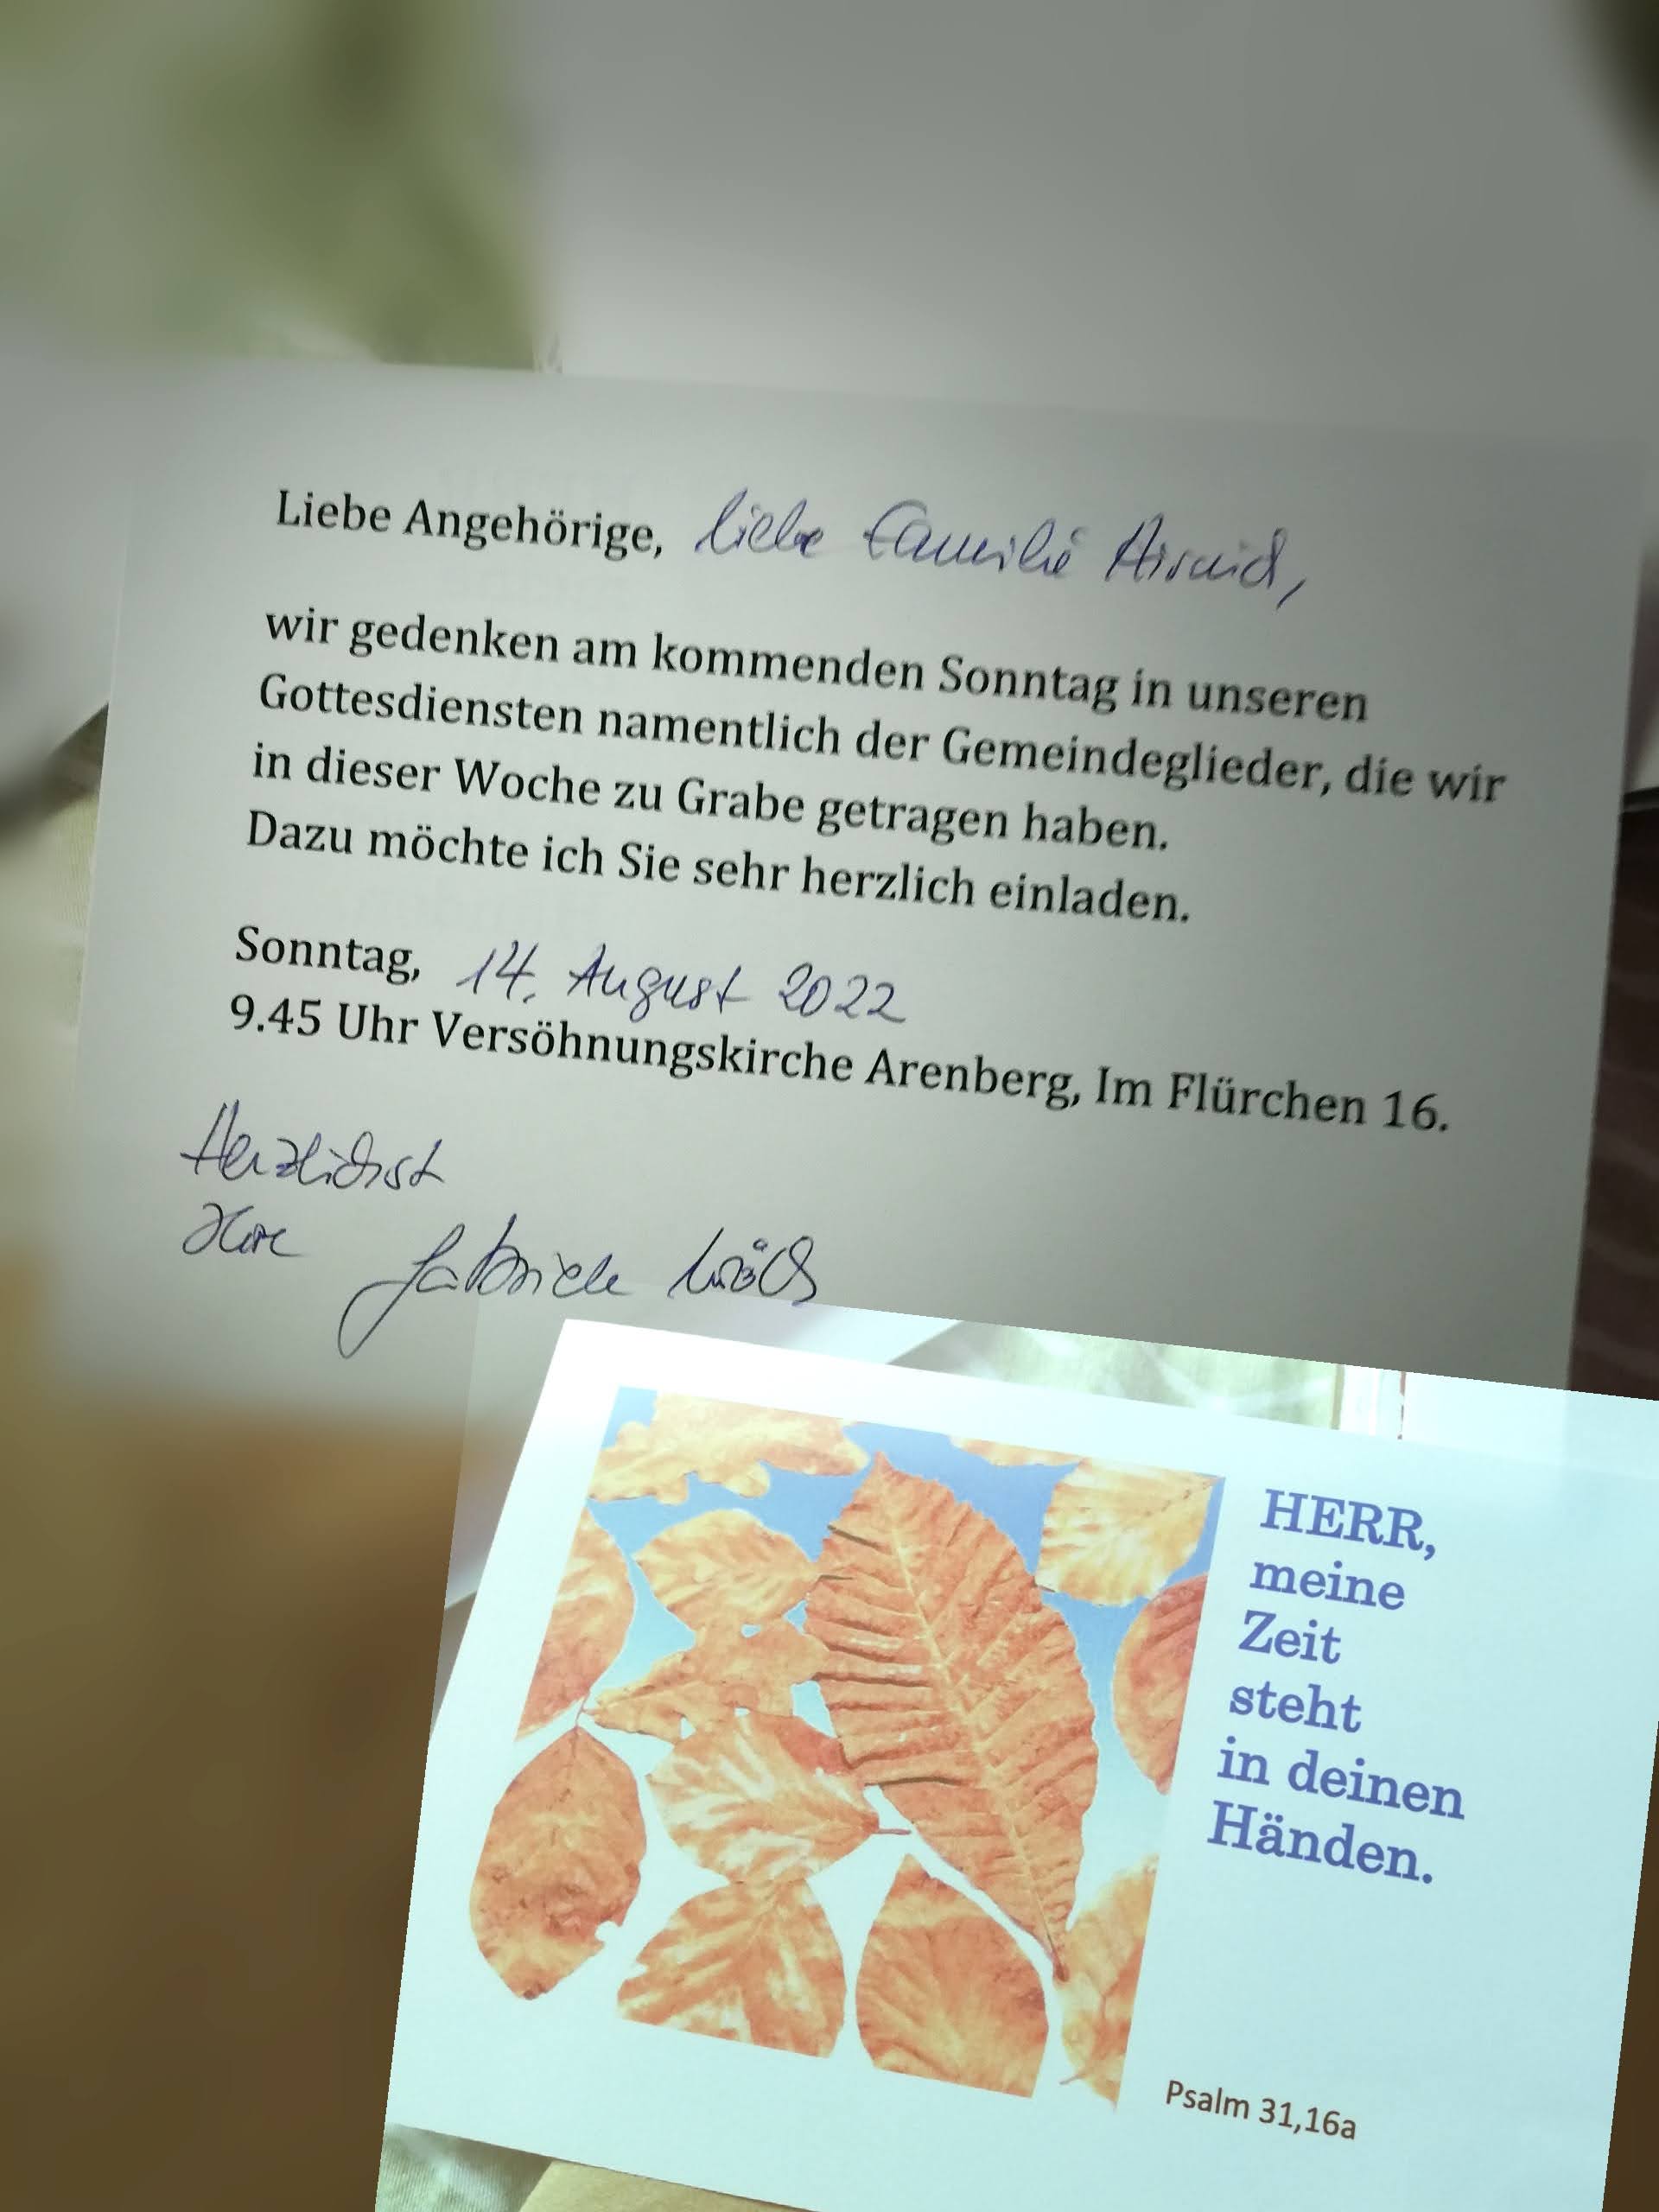 Liebe Angehörige, liebe Familie
wir gedenken am kommenden Sonntag in unseren
Gottesdiensten namentlich der Gemeindeglieder, die wir
in dieser Woche zu Grabe getragen haben.
Dazu möchte ich Sie sehr herzlich einladen.
Sonntag, 14. August 2022
9.45 Uhr Versöhnungskirche Arenberg, Im Flürchen 16.
Herzlichst
Ihre Gabriele
HERR,
meine
Zeit
steht
in deinen
Händen.
Psalm 31,16a